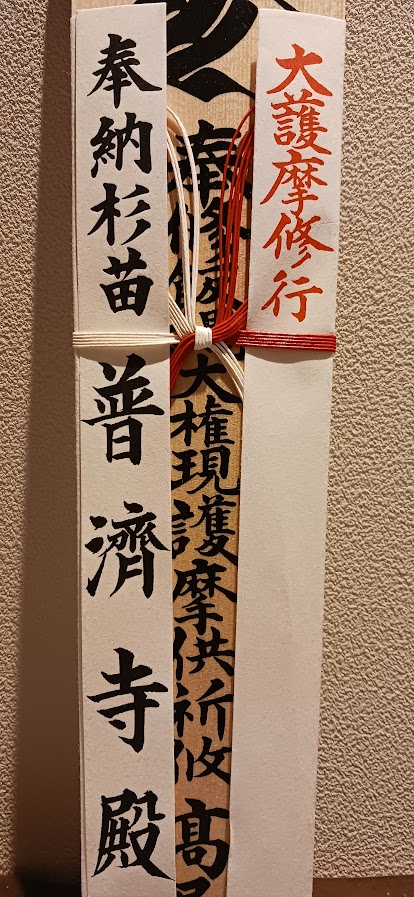 大護摩修行
奉修飯縄大権現護摩供祈攸高
奉納杉苗 普濟寺殿